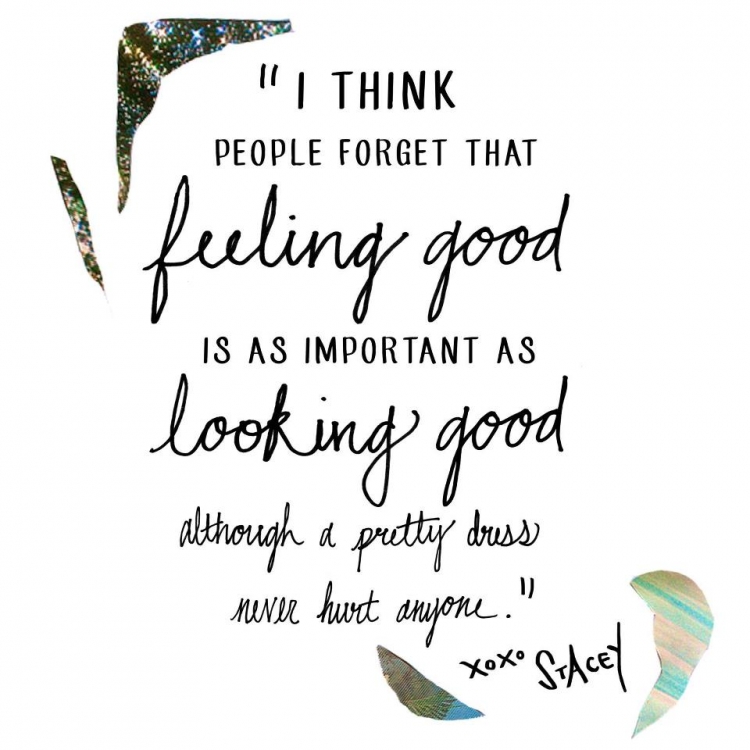 "I THINK
PEOPLE FORGET THAT
feeling good
IS AS IMPORTANT AS
looking good
although a pretty dress
never hurt anyone."
xoxo STACEY